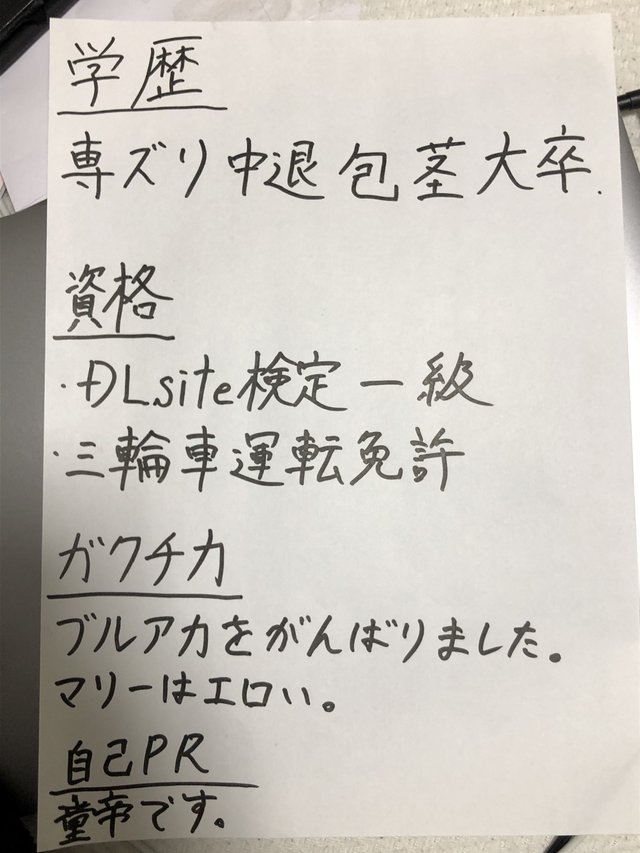 学歴
専ズリ中退 包茎大卒.
資格
・DLsite検定一級
・三輪車運転免許
ガクチカ
ブルアカをがんばりました。
マリーはエロい。
自己PR
童帝です。